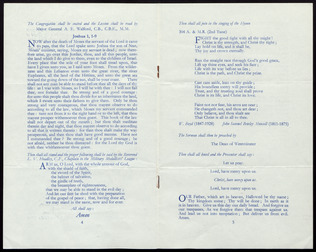 The Congregation shall be seated and the Lesson shall be read by
Major General A. E. Walford, C.B., C.B.E., M.M.
Joshua i, 1-9
NOW after the death of Moses the servant of the Lord it came
to pass, that the Lord spake unto Joshua the son of Nun,
Moses' minister, saying, Moses my servant is dead; now there-
fore arise, go over this Jordan, thou, and all this people, unto
the land which I do give to them, even to the children of Israel.
Every place that the sole of your foot shall tread upon, that
have I given unto you, as I said unto Moses. From the wilder-
ness and this Lebanon even unto the great river, the river
Euphrates, all the land of the Hittites, and unto the great sea
toward the going down of the sun, shall be your coast. There
shall not any man be able to stand before thee all the days of thy
life: as I was with Moses, so I will be with thee: I will not fail
thee, nor forsake thee. Be strong and of a good courage:
for unto this people shalt thou divide for an inheritance the land,
which I sware unto their fathers to give them. Only be thou
strong and very courageous, that thou mayest observe to do
according to all the law, which Moses my servant commanded
thee: turn not from it to the right hand or to the left, that thou
mayest prosper whithersoever thou goest. This book of the law
shall not depart out of thy mouth; but thou shalt meditate
therein day and night, that thou mayest observe to do according
to all that is written therein: for then thou shalt make thy way
prosperous, and then thou shalt have good success. Have not
I commanded thee? Be strong and of a good courage; be
not afraid, neither be thou dismayed: for the Lord thy God is
with thee whithersoever thou goest.
Then shall all stand and the prayer following shall be said by the
the shield of faith,
the sword of the Spirit,
the helmet of salvation,
Then all shall say:
Amen
Then shall all join in the singing of the Hymn
FIGHT the good fight with all thy might!
Christ is thy strength, and Christ thy right;
Lay hold on life, and it shall be
Thy joy and crown eternally.
Run the straight race through God's good grace,
Lift up thine eyes, and seek his face;
Life with its way before us lies;
Christ is the path, and Christ the prize.
Cast care aside, lean on thy guide;
His boundless mercy will provide;
Trust, and the trusting soul shall prove
Christ is its life, and Christ its love.
Faint not nor fear, his arms are near;
He changeth not, and thou art dear;
Only believe, and thou shalt see
That Christ is all in all to thee.
The Sermon shall then be preached by
The Dean of Westminster
Then shall all kneel and the Precentor shall say:
Let us pray.
Lord, have mercy upon us.
Christ, have mercy upon us.
Lord, have mercy upon us.
OUR Father, which art in heaven, Hallowed be thy name;
Thy kingdom come; Thy will be done; In earth as it
is in heaven. Give us this day our daily bread. And forgive us
our trespasses, As we forgive them that trespass against us.
And lead us not into temptation; But deliver us from evil.
Amen.